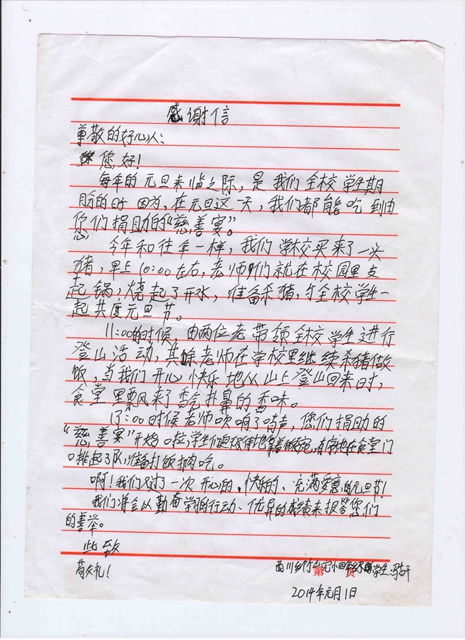 感谢信
尊敬的好心人：
您好！
每年的元旦来临之际，是我们全校学生期
盼的时 因为，在元旦这一天，我们都能吃到由
您们捐助的“慈善宴”。
今年和往年一样，我们学校买来了一头
猪，早上10:00左右，老师们就在校园里支
起锅，烧起了开水，准备杀猪，与全校学生一
起共度元旦节。
11:00的时候 由两位老 带领全校学生进行
登山活动，其余老师在学校里继续杀猪做
饭，当我们开心快乐地从山上登山回来时，
食堂里飘来了香气扑鼻的香味。
13:00时候老师吹响了哨声，您们捐助的
“慈善宴”开始 学生们 在食堂门
口排起了队准备打饭 肉吃。
啊！我们又过了一次开心的、快乐的、充满爱意的元旦节！
我们将会以勤奋学习的行动、优异的成绩来报答您们
的善举。
此致
敬礼！
西川乡 学生：
2014年元月1日